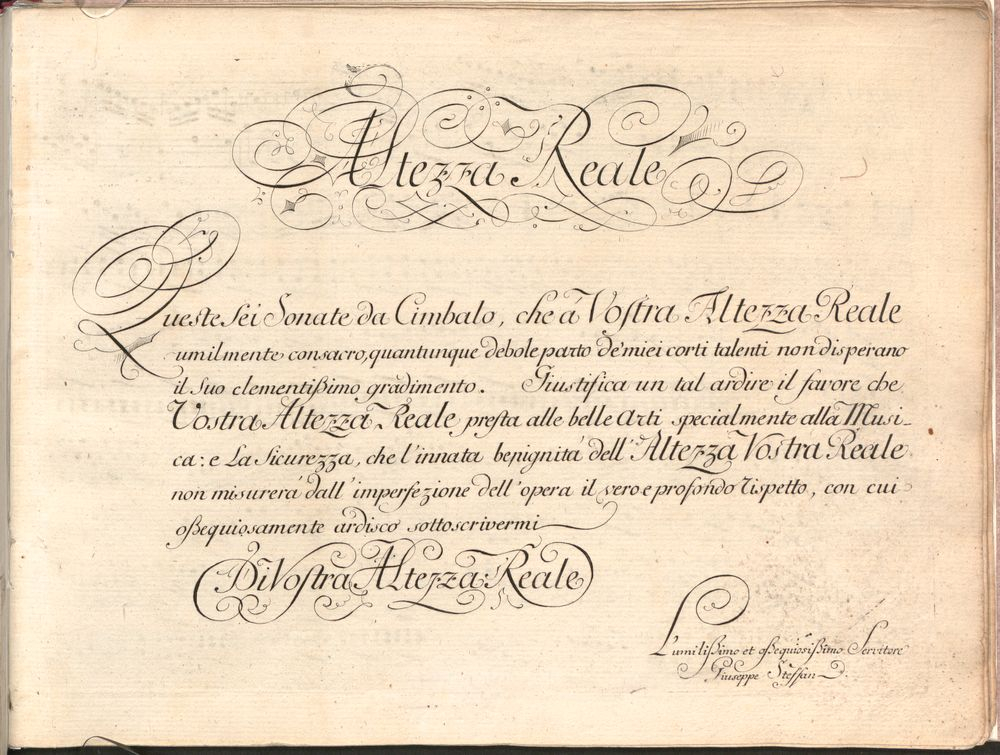 Altezza Reale
Queste sei Sonate da Cimbalo, che á Vostra Altezza Reale
umilmente consacro, quantunque debole parto de' miei corti talenti non disperano
il suo clementißimo gradimento. Giustifica un tal ardire il favore che
Vostra Altezza Reale presta alle belle Arti specialmente alla Musi-
ca: e La sicurezza, che l'innata benignitá dell'Altezza Vostra Reale
non misurerá dall'imperfezione dell'opera il vero e profondo rispetto, con cui
oßequiosamente ardisco sottoscrivermi
Di Vostra Altezza Reale
L'umilißimo et oßequiosißimo Servitore
Giuseppe Steffan